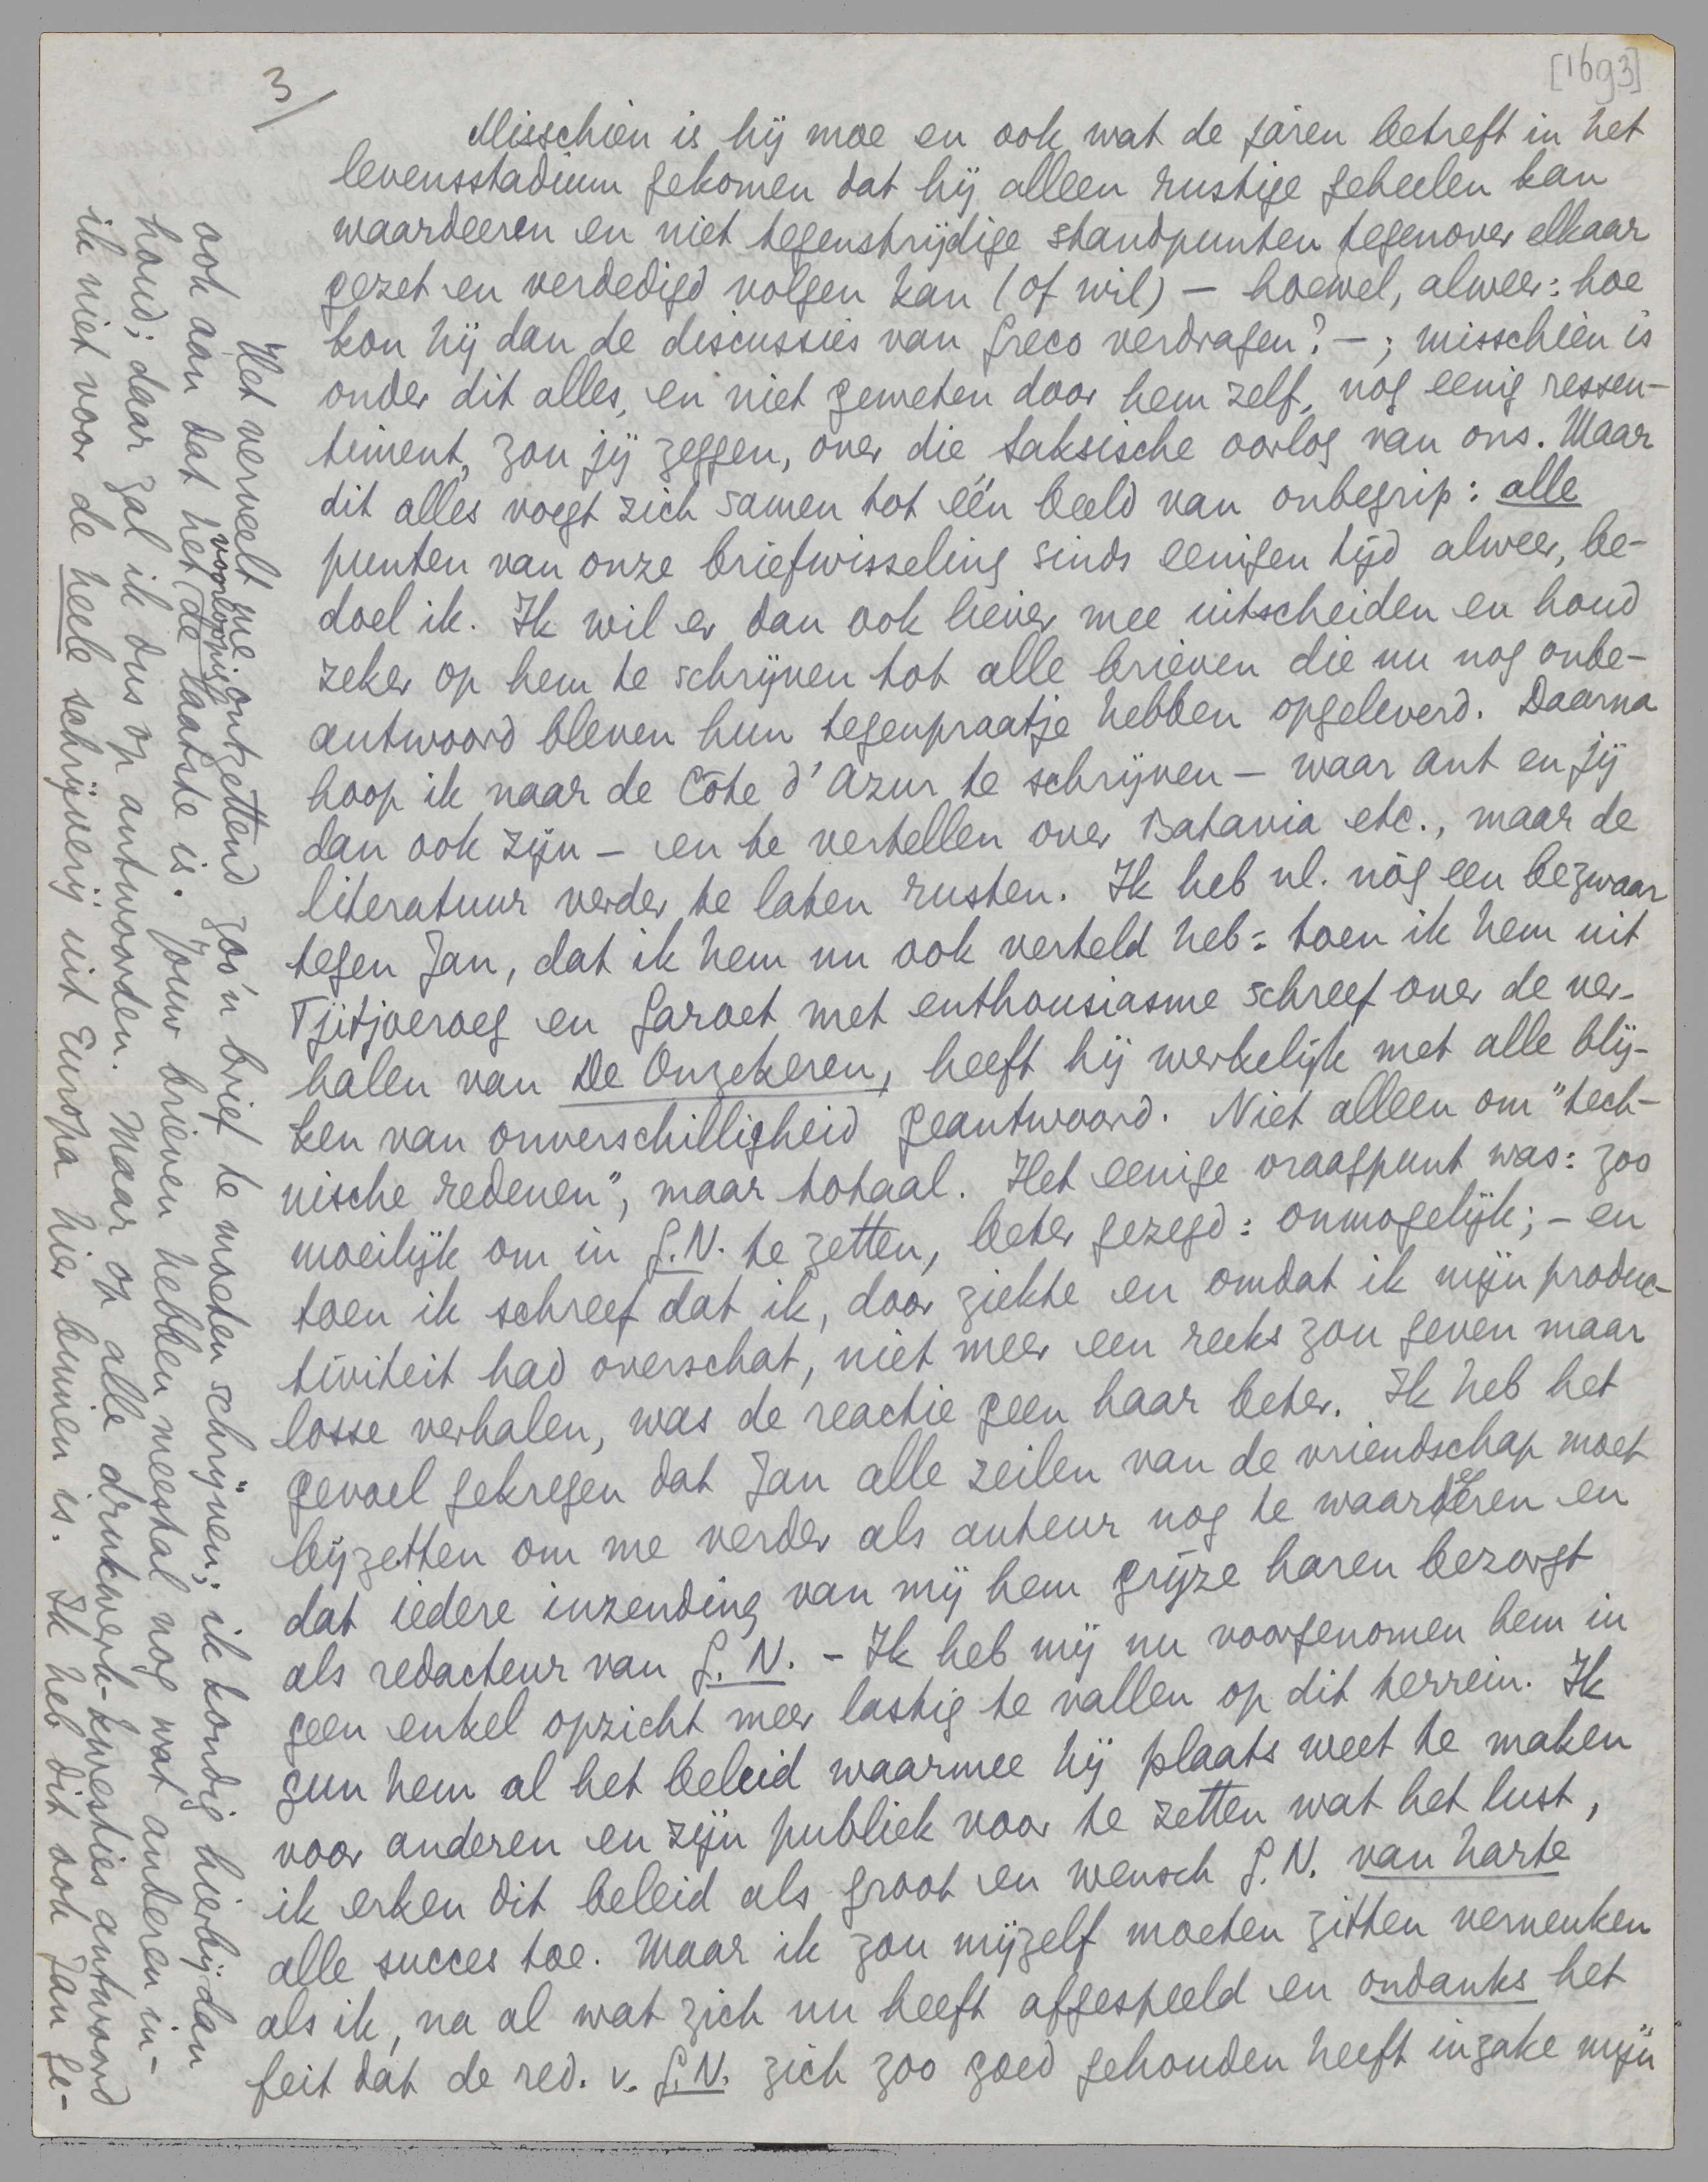 3/
[1693]
Misschien is hij moe en ook wat de jaren betreft in het
levensstadium gekomen dat hij alleen rustige geheelen kan
waardeeren en niet tegenstrijdige standpunten tegenover elkaar
gezet en verdedigd volgen kan (of wil) – hoewel, alweer: hoe
kon hij dan de discussies van Greco verdragen? – ; misschien is
onder dit alles, en niet geweten door hem zelf, nog eenig ressen-
timent, zou jij zeggen, over die saksische oorlog van ons. Maar
dit alles voegt zich samen tot één beeld van onbegrip: alle
punten van onze briefwisseling sinds eenigen tijd alweer, be-
doel ik. Ik wil er dan ook liever mee uitscheiden en houd
zeker op hem te schrijven tot alle brieven die nu nog onbe-
antwoord bleven hun tegenpraatje hebben opgeleverd. Daarna
hoop ik naar de Côte d'Azur te schrijven – waar Ant en jij
dan ook zijn – en te vertellen over Batavia etc., maar de
literatuur verder te laten rusten. Ik heb nl. nòg een bezwaar
tegen Jan, dat ik hem nu ook verteld heb: toen ik hem uit
Tjitjoeroeg en Garoet met enthousiasme schreef over de ver-
halen van De Onzekeren, heeft hij werkelijk met alle blij-
ken van onverschilligheid geantwoord. Niet alleen om "tech-
nische redenen", maar totaal. Het eenige vraagpunt was: zoo
moeilijk om in G.N. te zetten, beter gezegd: onmogelijk; – en
toen ik schreef dat ik, door ziekte en omdat ik mijn produc-
tiviteit had overschat, niet meer een reeks zou geven maar
losse verhalen, was de reactie geen haar beter. Ik heb het
gevoel gekregen dat Jan alle zeilen van de vriendschap moet
bijzetten om me verder als auteur nog te waardeeren en
dat iedere inzending van mij hem grijze haren bezorgt
als redacteur van G.N. – Ik heb mij nu voorgenomen hem in
geen enkel opzicht meer lastig te vallen op dit terrein. Ik
gun hem al het beleid waarmee hij plaats weet te maken
voor anderen en zijn publiek voor te zetten wat het lust,
ik erken dit beleid als groot en wensch G.N. van harte
alle succes toe. Maar ik zou mijzelf moeten zitten verneuken
als ik, na al wat zich nu heeft afgespeeld en ondanks het
feit dat de red. v. G.N. zich zoo goed gehouden heeft inzake mijn
Het verveelt me ontzettend zoo'n brief te moeten schrijven; ik kondig hierbij dan
ook aan dat het de voorloopig laatste is. Jouw brieven hebben meestal nog wat anderen in-
houd; daar zal ik dus op antwoorden. Maar op alle drukwerk-kwesties antwoord
ik niet voor de heele schrijverij uit Europa hier binnen is. Ik heb dit ook Jan ge-